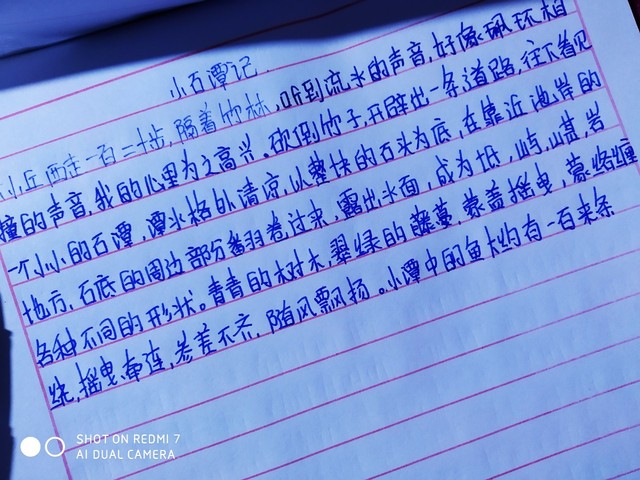 小石潭记.
小丘西走一百二十步,隔着竹林,听到流水的声音,好像珮环相
撞的声音,我的心里为之高兴。砍倒竹子,开辟出一条道路,往下看见
一个小小的石潭,潭水格外清凉,以整块的石头为底,在靠近池岸的
地方,石底的周边部分翻卷过来,露出水面,成为坻,屿,嵁,岩
各种不同的形状。青青的树木,翠绿的藤蔓,蒙盖摇曳,蒙络缠
绕,摇曳牵连,参差不齐,随风飘扬。小潭中的鱼大约有一百来条
SHOT ON REDMI 7
AI DUAL CAMERA